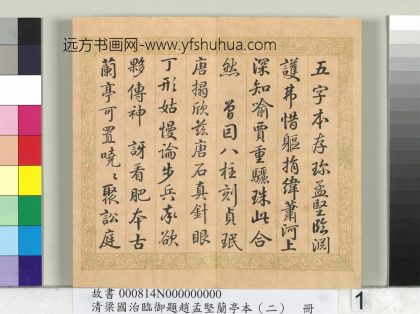 远方书画网-www.yfshuhua.com
五字本存珎孟堅臨淵
護弗惜軀捐緯蕭河上
深知喻賈重驪珠此合
然 曽因八柱刻貞珉
唐搨欣兹唐石真針眼
丁形姑慢論步兵奉欲
夥傳神 訝看肥本古
蘭亭可置嘵〻聚訟庭
故書 000814N000000000
清梁國治臨御題趙孟堅蘭亭本（二） 冊
1